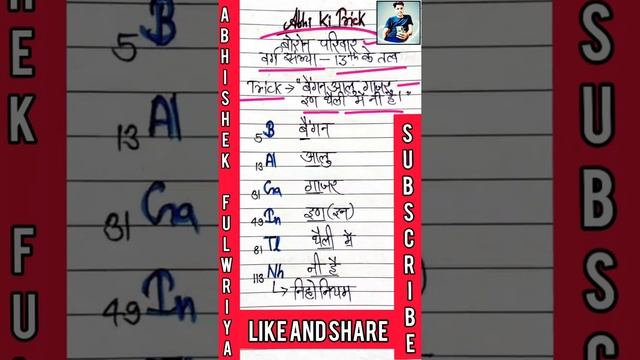 Abhi Ki Trick
बोरोन परिवार
वर्ग संख्या - 13th के तत्व
Trick → "बैंगन, आलू, गाजर
इण थैली में नी है।"
5 B बैंगन
13 Al आलु
31 Ga गाजर
49 In इण (इन)
81 Tl थैली में
113 Nh नी है
↳ निहोनियम
ABHISHEK FULWRIYA
SUBSCRIBE
LIKE AND SHARE
5 B
13 Al
31 Ga
49 In
EK FU
SUBS